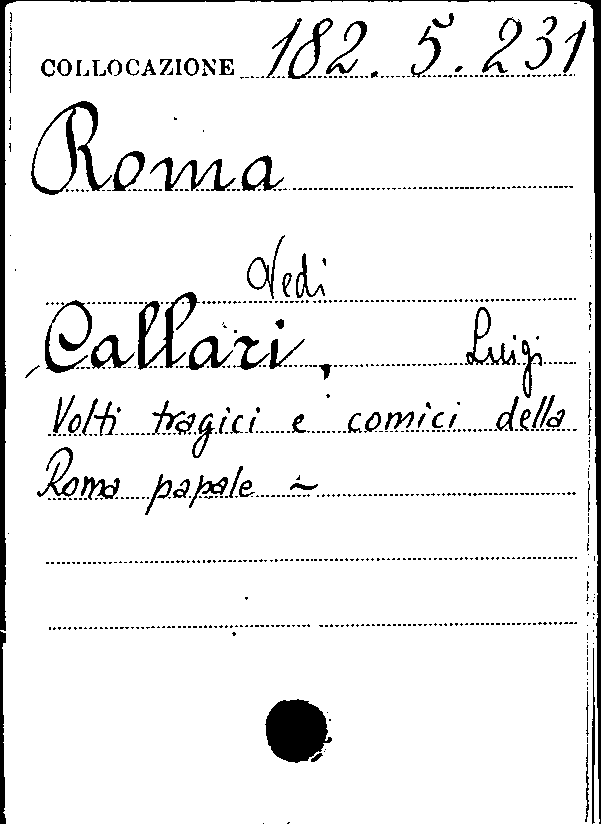 COLLOCAZIONE 182. 5. 231
Roma
Vedi
Callari, Luigi
Volti tragici e comici della
Roma papale ~